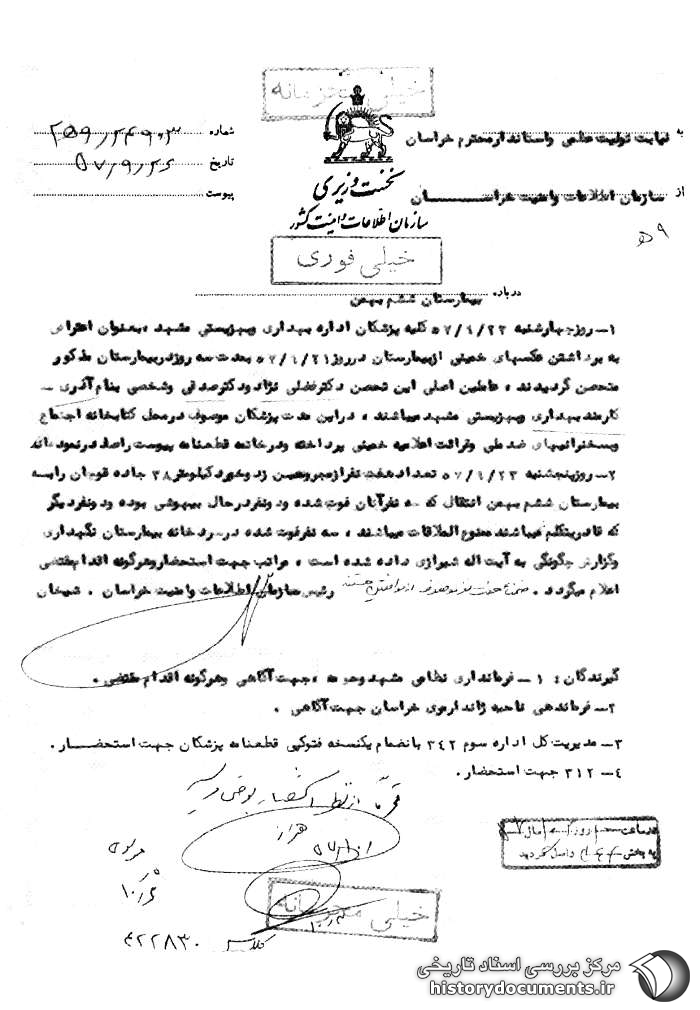 خیلی محرمانه
به نیابت تولیت عظمی واستاندارمحترم خراسان
شماره
از سازمان اطلاعات وامنیت خراسان
تاریخ
پیوست
نخست وزیری
سازمان اطلاعات و امنیت کشور
۹ ه
خیلی فوری
درباره بیمارستان ششم بهمن
۱ـ روزچهارشنبه کلیه پزشکان اداره بهداری وبهزیستی مشهد ،بعنوان اعتراض
به برداشتن عکسهای خمینی ازبیمارستان درروز بمدت سه روزدربیمارستان مذکور
متحصن گردیدند ، عاملین اصلی این تحصن دکترفضلی نژاد ودکترصدقی وشخصی بنام آذری ـ
کارمند بهداری وبهزیستی مشهد میباشند ، دراین مدت پزشکان موصوف درمحل کتابخانه اجتماع
وبسخنرانیهای ضد ملی وقرائت اعلامیه خمینی پرداخته ودرخاتمه قطعنامه پیوست راصادرنموده‌اند
۲ـ روزپنجشنبه تعداد هفت نفرازمجروحین زد وخورد کیلومتر ۳۸ جاده قوچان رابه
بیمارستان ششم بهمن انتقال که سه نفرآنان فوت شده ود ونفردرحال بیهوشی بوده ود ونفردیگر
که قادربتکلم میباشند ممنوع الملاقات میباشند ، سه نفرفوت شده درسردخانه بیمارستان نگهداری
وگزارش چگونگی به آیت اله شیرازی داده شده است ، مراتب جهت استحضاروهرگونه اقدام مقتضی
اعلام میگردد . ضمنا هفت نفر موصوف از موافقین هستند رئیس سازمان اطلاعات وامنیت خراسان . شیخان
گیرندگان : ۱ـ فرمانداری نظامی مشهد وحومه ،جهت آگاهی وهرگونه اقدام مقتضی .
۲ـ فرماندهی ناحیه ژاندارمری خراسان جهت آگاهی .
۳ـ مدیریت کل اداره سوم ۳۴۲ باانضمام یکنسخه فتوکپی قطعنامه پزشکان جهت استحضـــار.
۴ـ ۳۱۲ جهت استحضار.
درساعت روز سال
به بخش واصل گردید
خیلی محرمانه
کلاسه ۴۲۲۸۳۰
مرکز بررسی اسناد تاریخی
historydocuments.ir